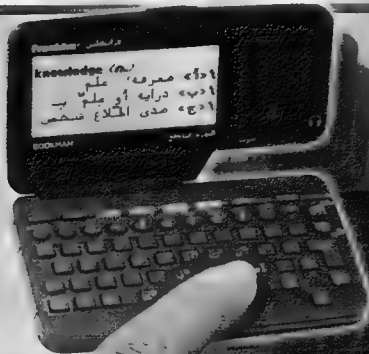 Franklin فرانكلين
knowledge (n.)
١<أ> معرفة، علم
١<ب> دراية أو علم بـ
١<ج> مدى اطلاع شخص
BOOKMAN